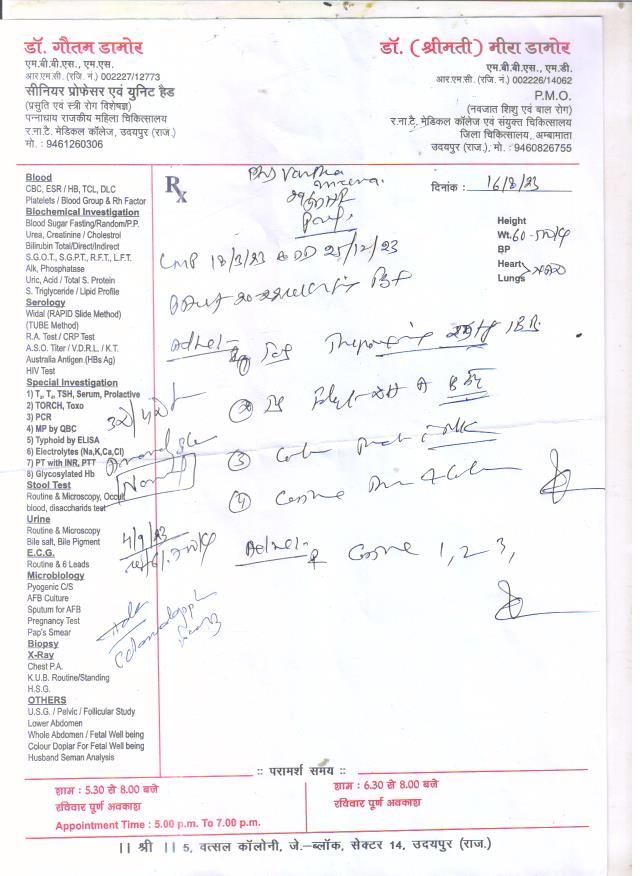 डॉ. गौतम डामोर
एम.बी.बी.एस., एम.एस.
आर.एम.सी. (रजि. नं.) 002227/12773
सीनियर प्रोफेसर एवं युनिट हैड
(प्रसुति एवं स्त्री रोग विशेषज्ञ)
पन्नाधाय राजकीय महिला चिकित्सालय
र.ना.टै. मेडिकल कॉलेज, उदयपुर (राज.)
मो. : 9461260306
डॉ. (श्रीमती) मीरा डामोर
एम.बी.बी.एस., एम.डी.
आर.एम.सी. (रजि. नं.) 002226/14062
P.M.O.
(नवजात शिशु एवं बाल रोग)
र.ना.टै. मेडिकल कॉलेज एवं संयुक्त चिकित्सालय
जिला चिकित्सालय, अम्बामाता
उदयपुर (राज.), मो. : 9460826755
Blood
CBC, ESR / HB, TCL, DLC
Platelets / Blood Group & Rh Factor
Biochemical Investigation
Blood Sugar Fasting/Random/P.P.
Urea, Creatinine / Cholestrol
Bilirubin Total/Direct/Indirect
S.G.O.T., S.G.P.T., R.F.T., L.F.T.
Alk, Phosphatase
Uric, Acid / Total S. Protein
S. Triglyceride / Lipid Profile
Serology
Widal (RAPID Slide Method)
(TUBE Method)
R.A. Test / CRP Test
A.S.O. Titer / V.D.R.L. / K.T.
Australia Antigen (HBs Ag)
HIV Test
Special Investigation
1) T₃, T₄, TSH, Serum, Prolactive
2) TORCH, Toxo
3) PCR
4) MP by QBC
5) Typhoid by ELISA
6) Electrolytes (Na,K,Ca,Cl)
7) PT with INR, PTT
8) Glycosylated Hb
Stool Test
Routine & Microscopy, Occult
blood, disaccharids test
Urine
Routine & Microscopy
Bile salt, Bile Pigment
E.C.G.
Routine & 6 Leads
Microbiology
Pyogenic C/S
AFB Culture
Sputum for AFB
Pregnancy Test
Pap's Smear
Biopsy
X-Ray
Chest P.A.
K.U.B. Routine/Standing
H.S.G.
OTHERS
U.S.G. / Pelvic / Follicular Study
Lower Abdomen
Whole Abdomen / Fetal Well being
Colour Doplar For Fetal Well being
Husband Seman Analysis
Rx
दिनांक : 16/8/23
Height
Wt. 60
BP
Heart
Lungs
LMP 18/3/23 EDD 25/12/23
Advice
②
③
④
4/9/23
1, 2, 3,
:: परामर्श समय ::
शाम : 5.30 से 8.00 बजे
रविवार पूर्ण अवकाश
Appointment Time : 5.00 p.m. To 7.00 p.m.
शाम : 6.30 से 8.00 बजे
रविवार पूर्ण अवकाश
|| श्री || 5, वत्सल कॉलोनी, जे.–ब्लॉक, सेक्टर 14, उदयपुर (राज.)